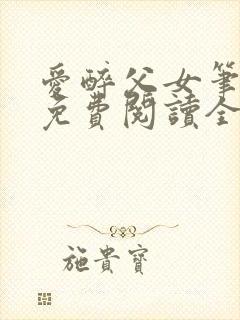 愛醉父女筆
免費閱讀全
施貴寶